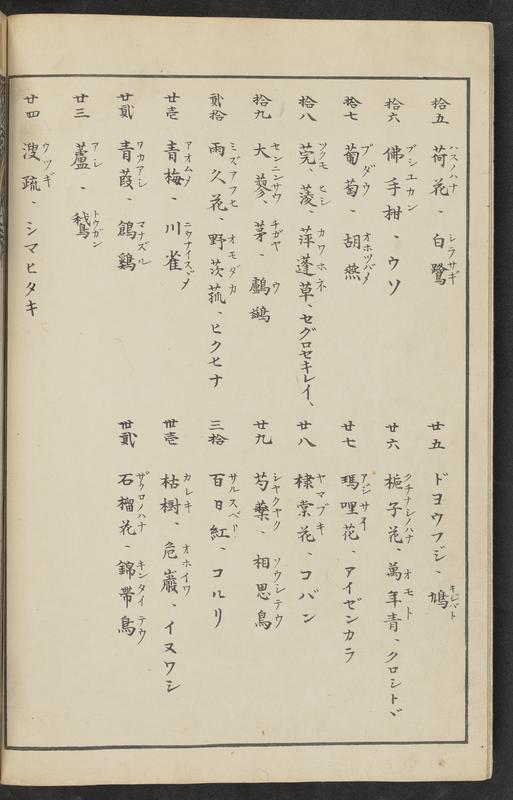 拾五 荷花、白鷺 ハスノハナ シラサギ
拾六 佛手柑、ウソ ブシユカン
拾七 葡萄、胡燕 ブダウ オホツバメ
拾八 莞、菱、萍蓬草、セグロセキレイ、 ツクモ ヒシ カワホネ
拾九 大蓼、茅、鸕鷀 センニンサウ チガヤ ウ
貳拾 雨久花、野茨菰、ヒクヒナ ミズアフヒ オモダカ
廿壱 青梅、川雀 アオムメ ニウナイスヾメ
廿貳 青葭、鶬鷄 ワカアシ マナズル
廿三 蘆、 アシ トウガン
廿四 溲疏、シマヒタキ ウツギ
廿五 ドヨウフジ、鳩 キジバト
廿六 梔子花、萬年青、クロシトヾ クチナシノハナ オモト
廿七 瑪哩花、アイゼンカラ アジサイ
廿八 棣棠花、コバン ヤマブキ
廿九 芍藥、相思鳥 シヤクヤク ソウシテウ
三拾 百日紅、コルリ サルスベリ
卅壱 枯樹、危巖、イヌワシ カレキ オホイワ
卅貳 石榴花、錦帶鳥 ザクロノハナ キンタイテウ